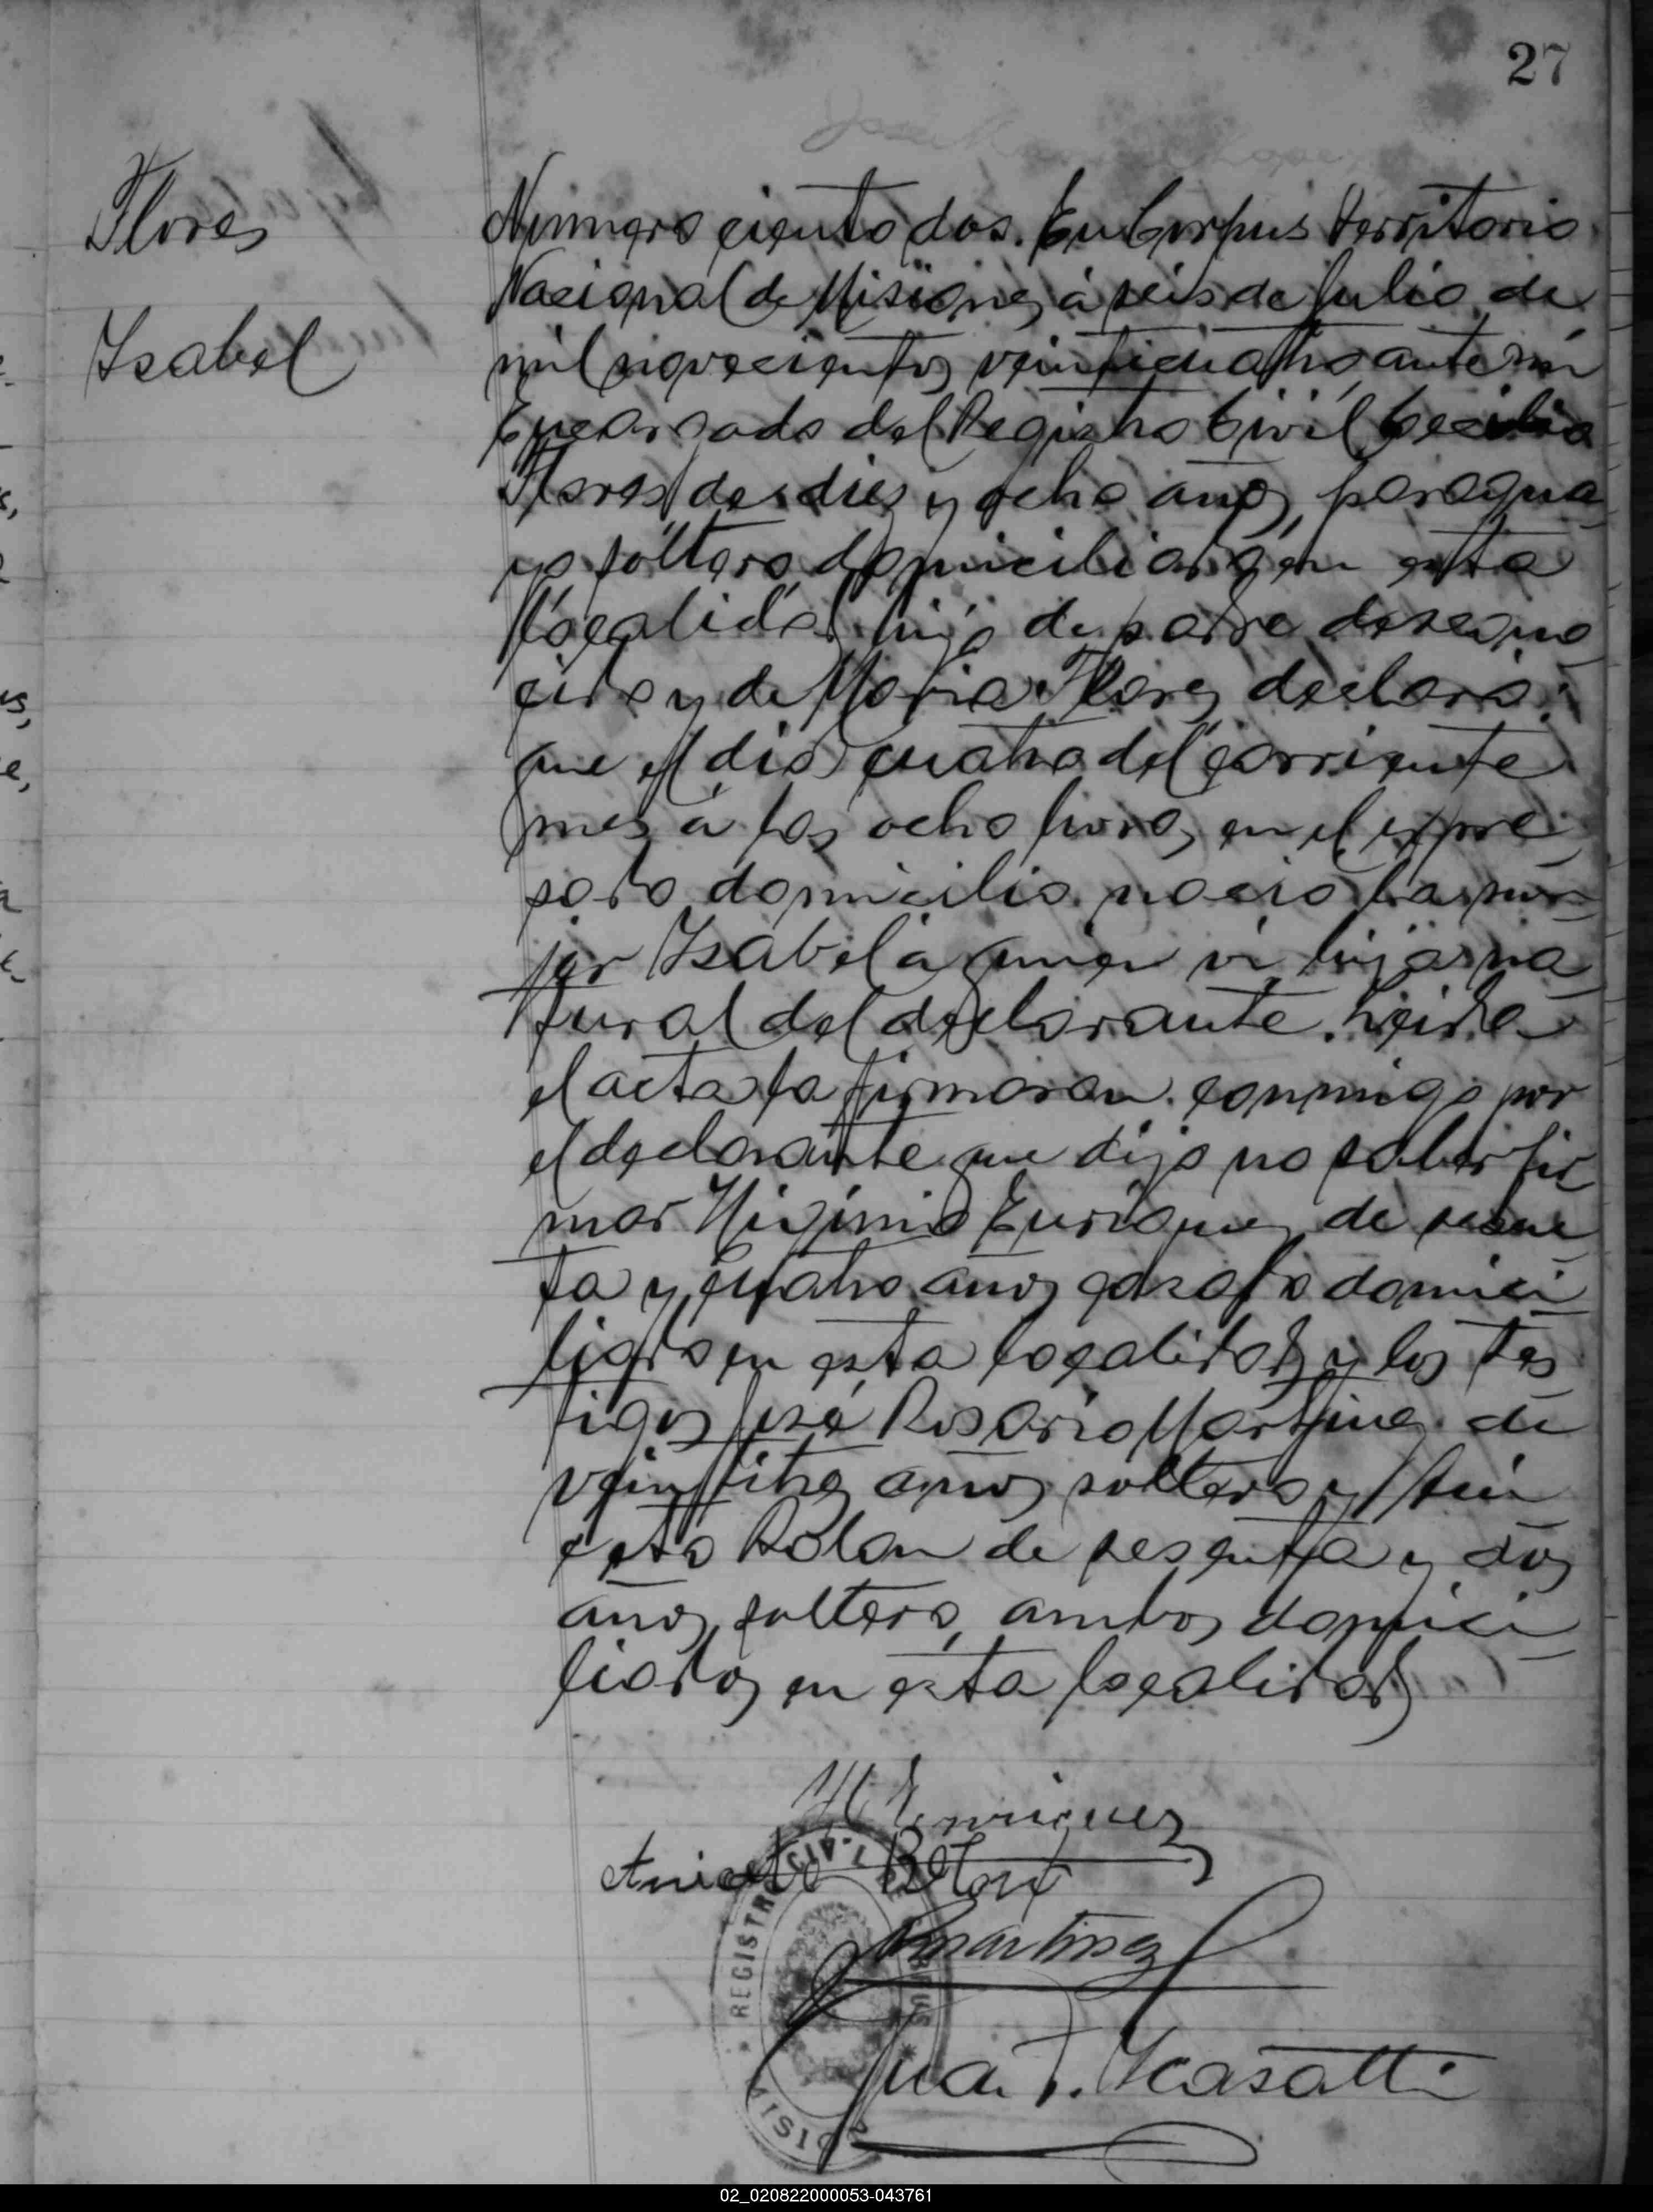 27
Flores
Isabel
Numero ciento dos. En Corpus Territorio
Nacional de Misiones, á seis de Julio de
mil novecientos veinticuatro ante mi
Encargado del Registro Civil
Flores de dies y ocho años, paragua
yo soltero domiciliado en esta
localidad hijo de padre descono
cido y de Maria Flores declaró:
que el dia cuatro del corriente
mes á las ocho horas en el expre
sado domicilio nació la mu
jer Isabel á quien vi hija na
tural del declarante. Leida
el acta la firmaron conmigo por
el declarante que dijo no saber fir
mar Higinio Enriquez de
ta y cuatro años casado domici
liado en esta localidad y los tes
tigos José Rosario Martinez de
veintitres años soltero y Ani
ceto de sesenta y dos
años, soltero, ambos domici
liados en esta localidad
H Enriquez
Aniceto
Martinez
Juan T. Scasatti
REGISTRO CIVIL
CORPUS
MISIONES
02_020822000053-043761